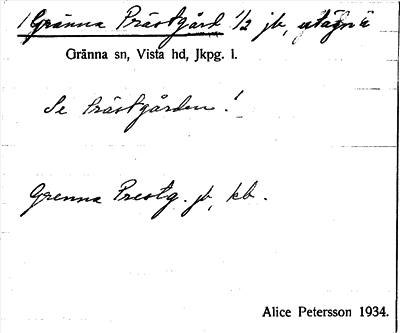 1 Gränna Prästgård 1/2 jb,
Gränna sn, Vista hd, Jkpg. l.
Se Prästgården!
Grenna Prestg. jb, kb.
Alice Petersson 1934.